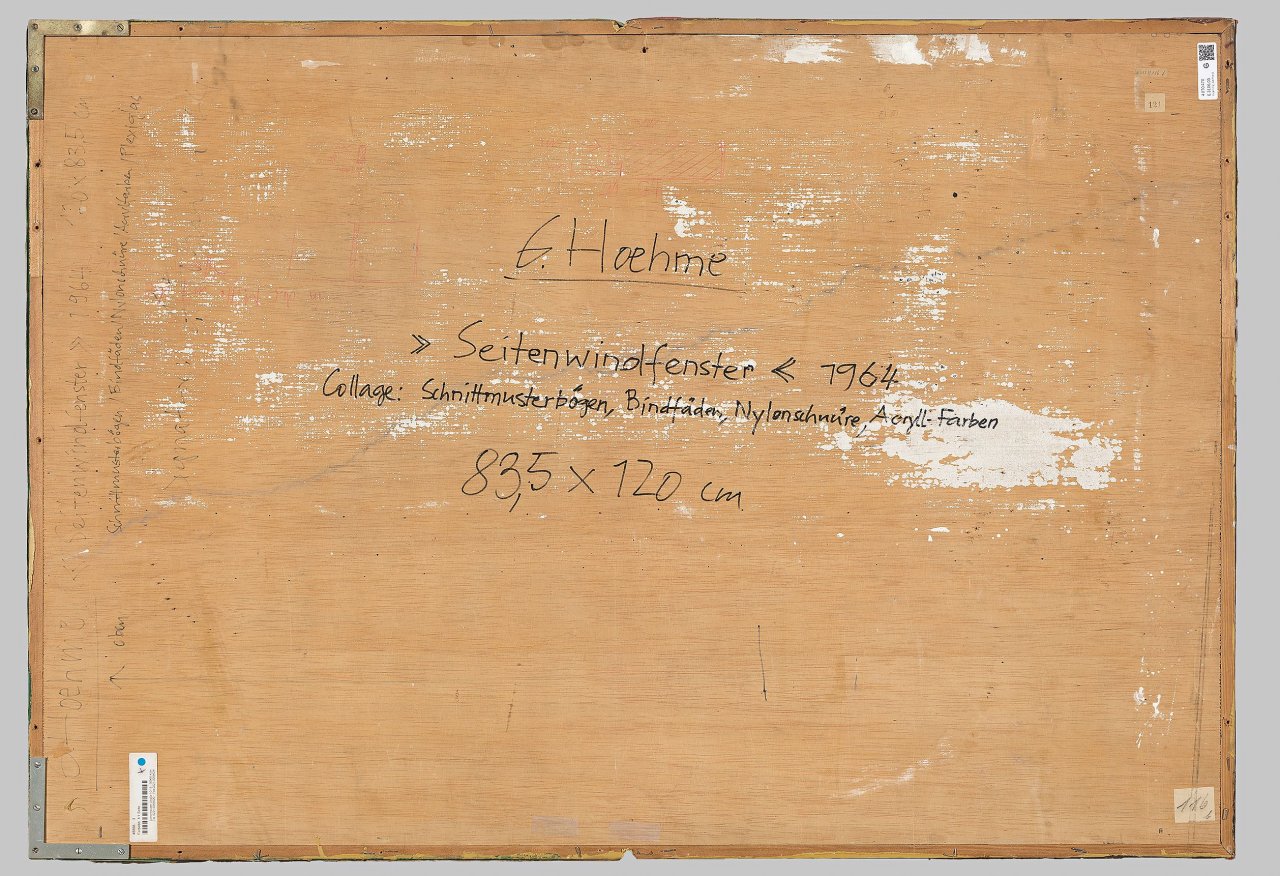 G. Hoehme
» Seitenwindfenster « 1964
Collage: Schnittmusterbögen, Bindfäden, Nylonschnüre, Acryll-Farben
83,5 x 120 cm
Hoehme « Seitenwindfenster » 1964 83,5 cm
Schnittmusterbögen Bindfäden/Nylonschnüre
↑ oben
121
116